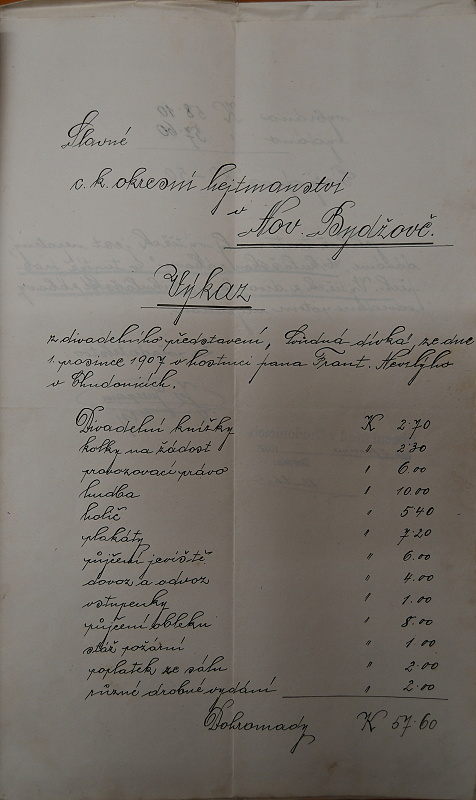 Slavné
c. k. okresní hejtmanství
v
Nov. Bydžově.
Výkaz
z divadelního představení, Bludná dívká, ze dne
1. prosince 1907 v hostinci pana Frant. Nevilýho
v Chudonicích.
Divadelní knížky K 2·70
kolky na žádost " 2·30
provozovací právo " 6.00
hudba " 10.00
holič " 5·40
plakáty " 7·20
půjčení jeviště " 6.00
dovoz a odvoz " 4.00
vstupenky " 1.00
půjčení obleku " 8.00
stáž požární " 1.00
poplatek ze sálu " 2·00
různé drobné vydání " 2·00
Dohromady K 57·60